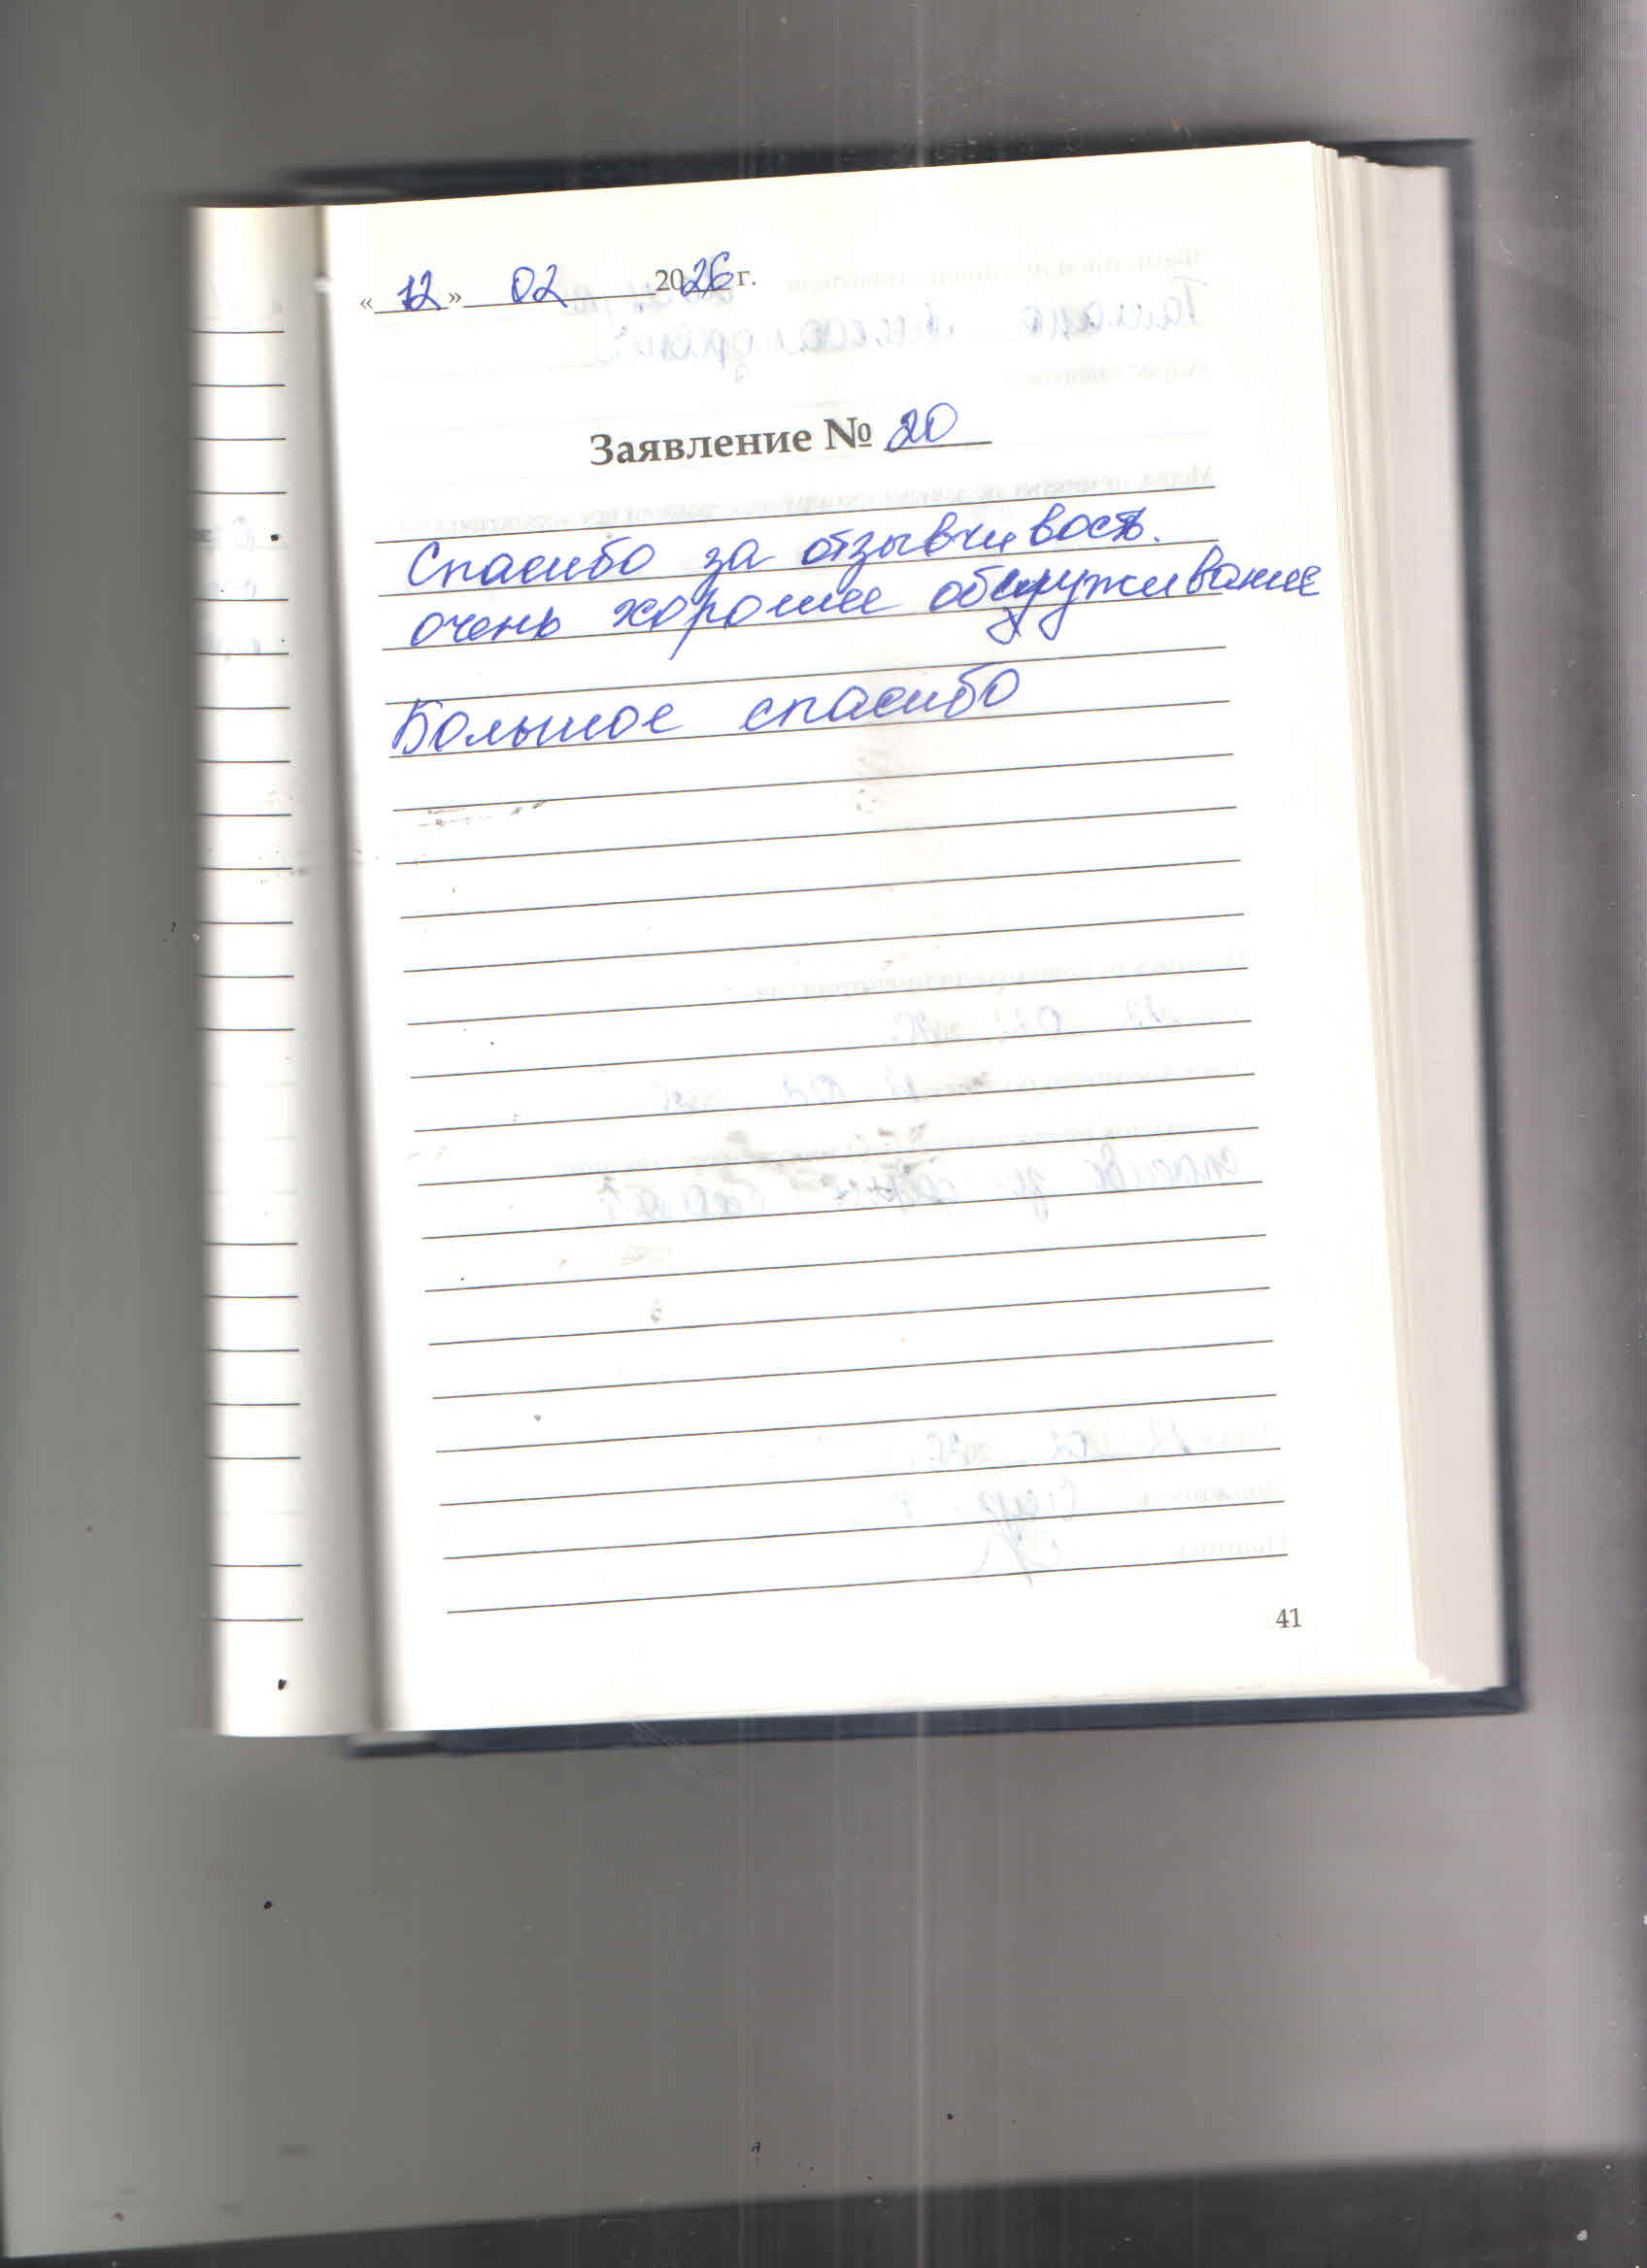 «12» 02 2026 г.
Заявление № 20
Спасибо за отзывчивость.
очень хорошее обслуживание
Большое спасибо
41